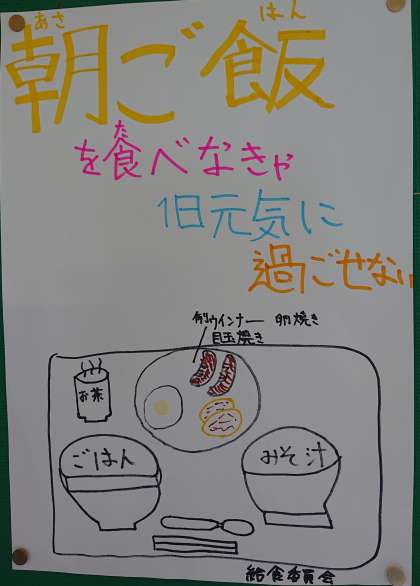 あさ はん
朝ご飯
た
を食べなきゃ
1日元気に
過ごせない
例ウインナー 卵焼き
目玉焼き
お茶
ごはん
みそ汁
給食委員会